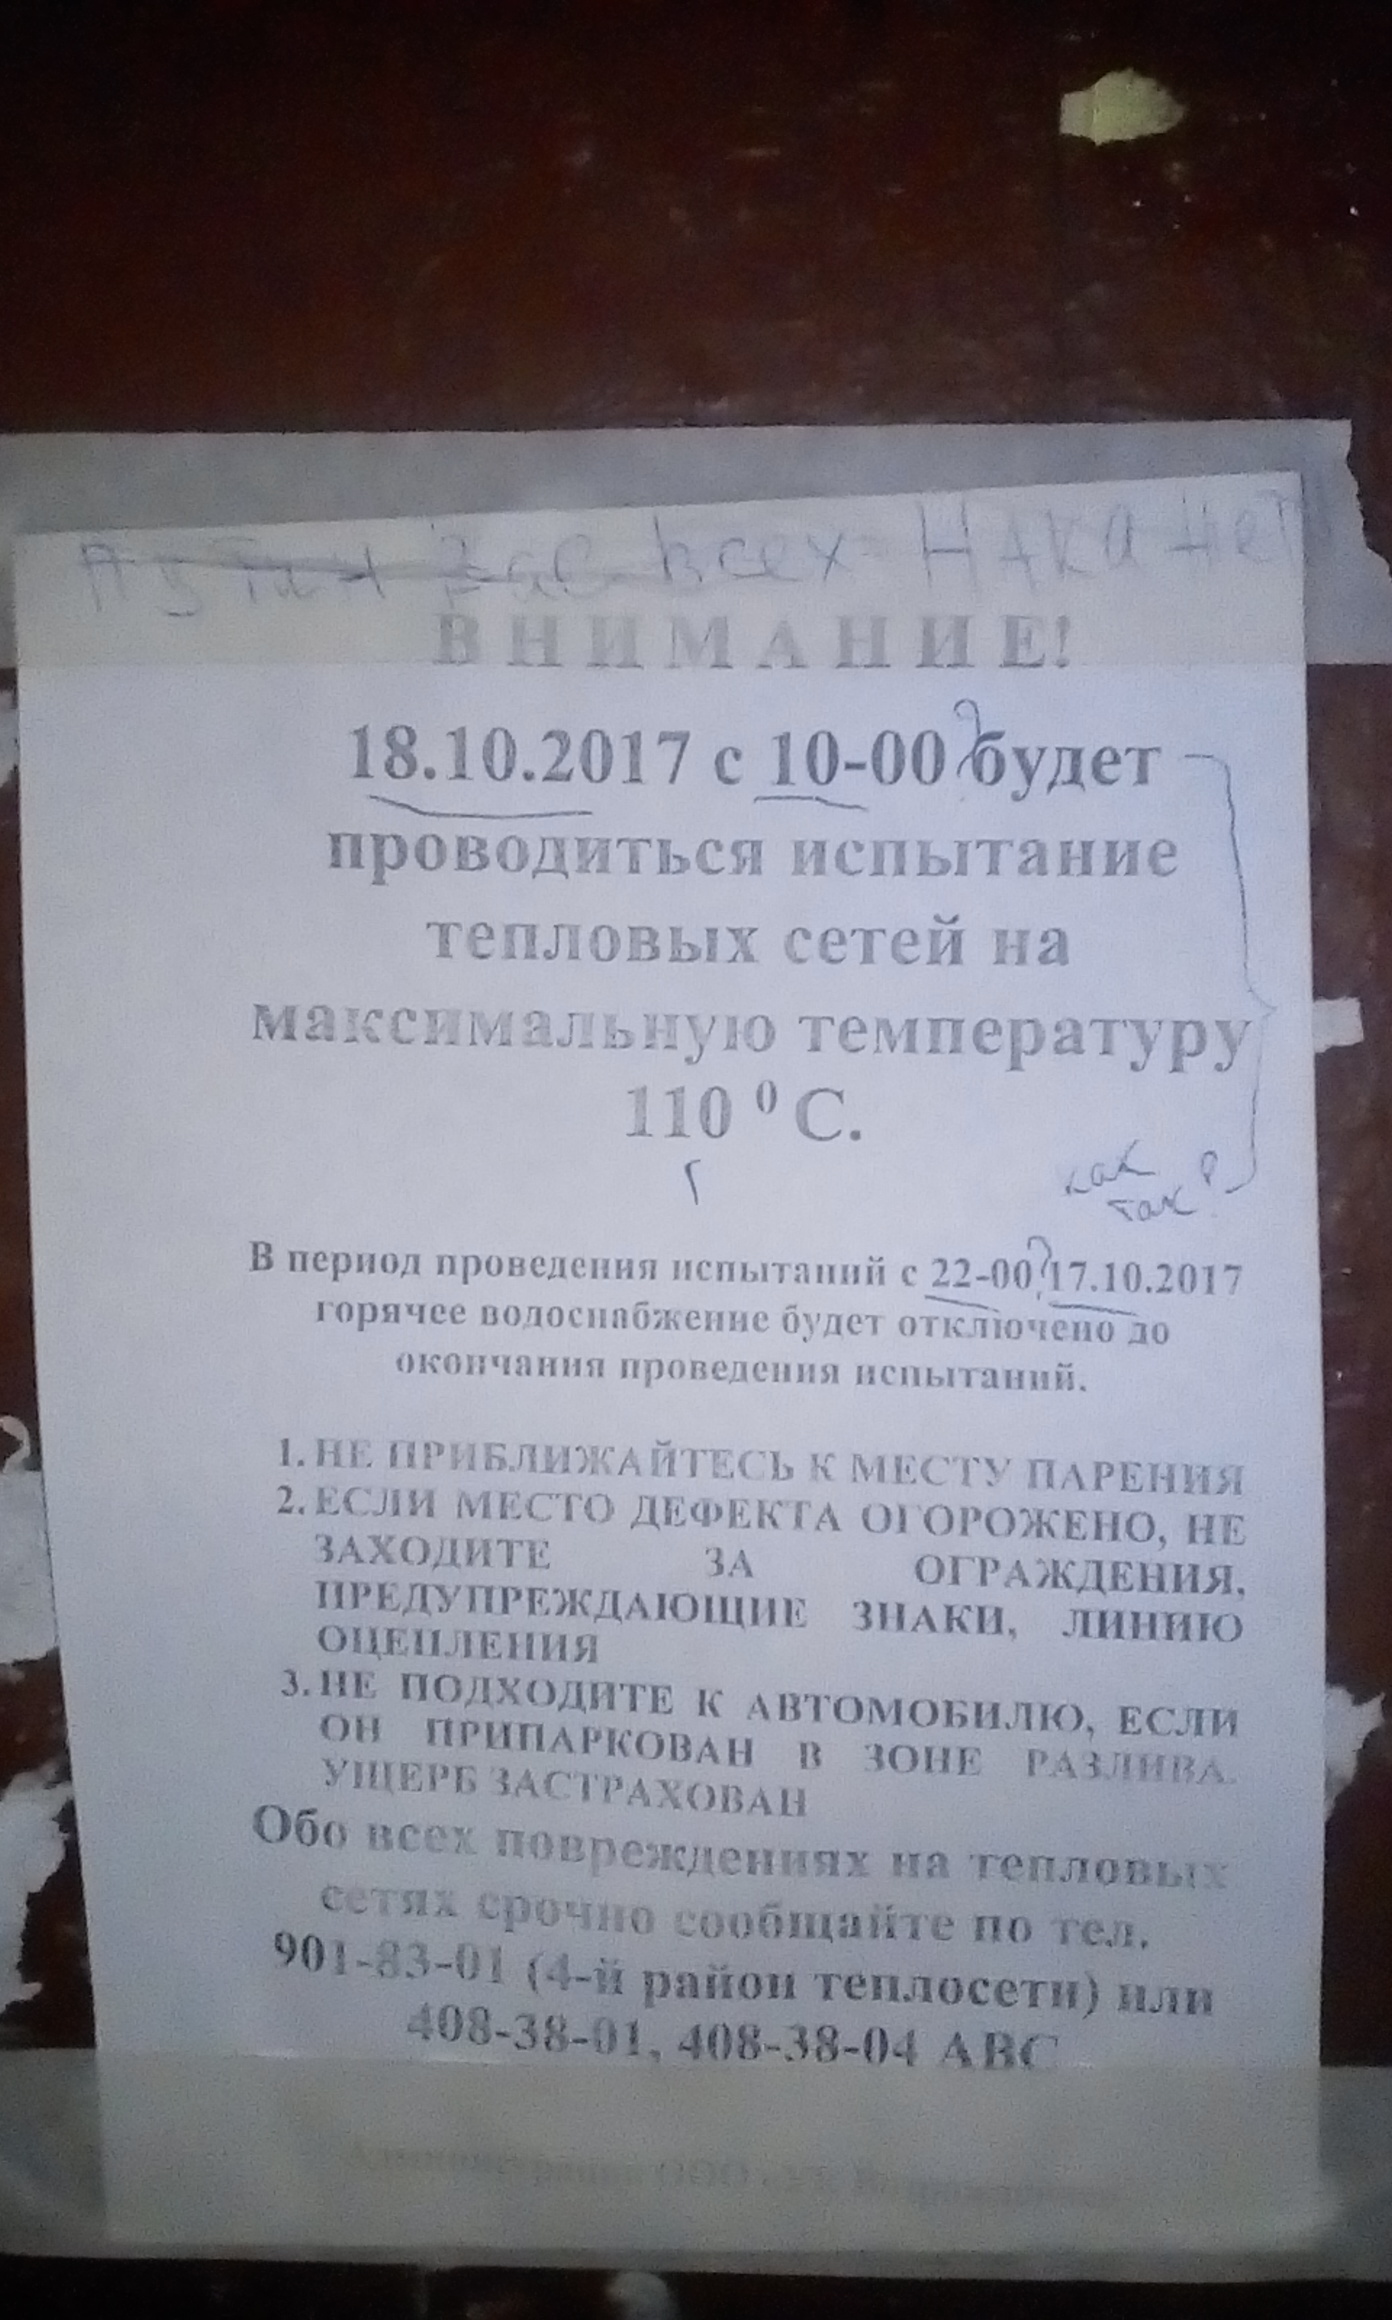 вас всех
ВНИМАНИЕ!
18.10.2017 с 10-00 ? будет
проводиться испытание
тепловых сетей на
максимальную температуру
110 ⁰ С.
как
так ?
В период проведения испытаний с 22-00 ? 17.10.2017
горячее водоснабжение будет отключено до
окончания проведения испытаний.
1. НЕ ПРИБЛИЖАЙТЕСЬ К МЕСТУ ПАРЕНИЯ
2. ЕСЛИ МЕСТО ДЕФЕКТА ОГОРОЖЕНО, НЕ
ЗАХОДИТЕ ЗА ОГРАЖДЕНИЯ,
ПРЕДУПРЕЖДАЮЩИЕ ЗНАКИ, ЛИНИЮ
ОЦЕПЛЕНИЯ
3. НЕ ПОДХОДИТЕ К АВТОМОБИЛЮ, ЕСЛИ
ОН ПРИПАРКОВАН В ЗОНЕ РАЗЛИВА.
УЩЕРБ ЗАСТРАХОВАН
Обо всех повреждениях на тепловых
сетях срочно сообщайте по тел.
901-83-01 (4-й район теплосети) или
408-38-01, 408-38-04 АВС
Администрация ООО